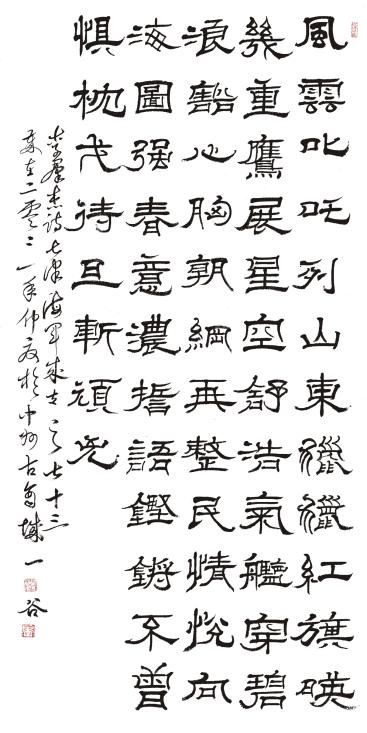 風雲叱吒列山東獵獵紅旗映
幾重鷹展星空舒浩氣艦穿碧
浪豁心胸朝綱再整民情悦向
海圖强春意濃誓語鏗鏘不曾
惧枕戈待旦斬頑兇
詩七律海軍成立之七十三
歲在二零二一年仲夏於中州古商城一谷